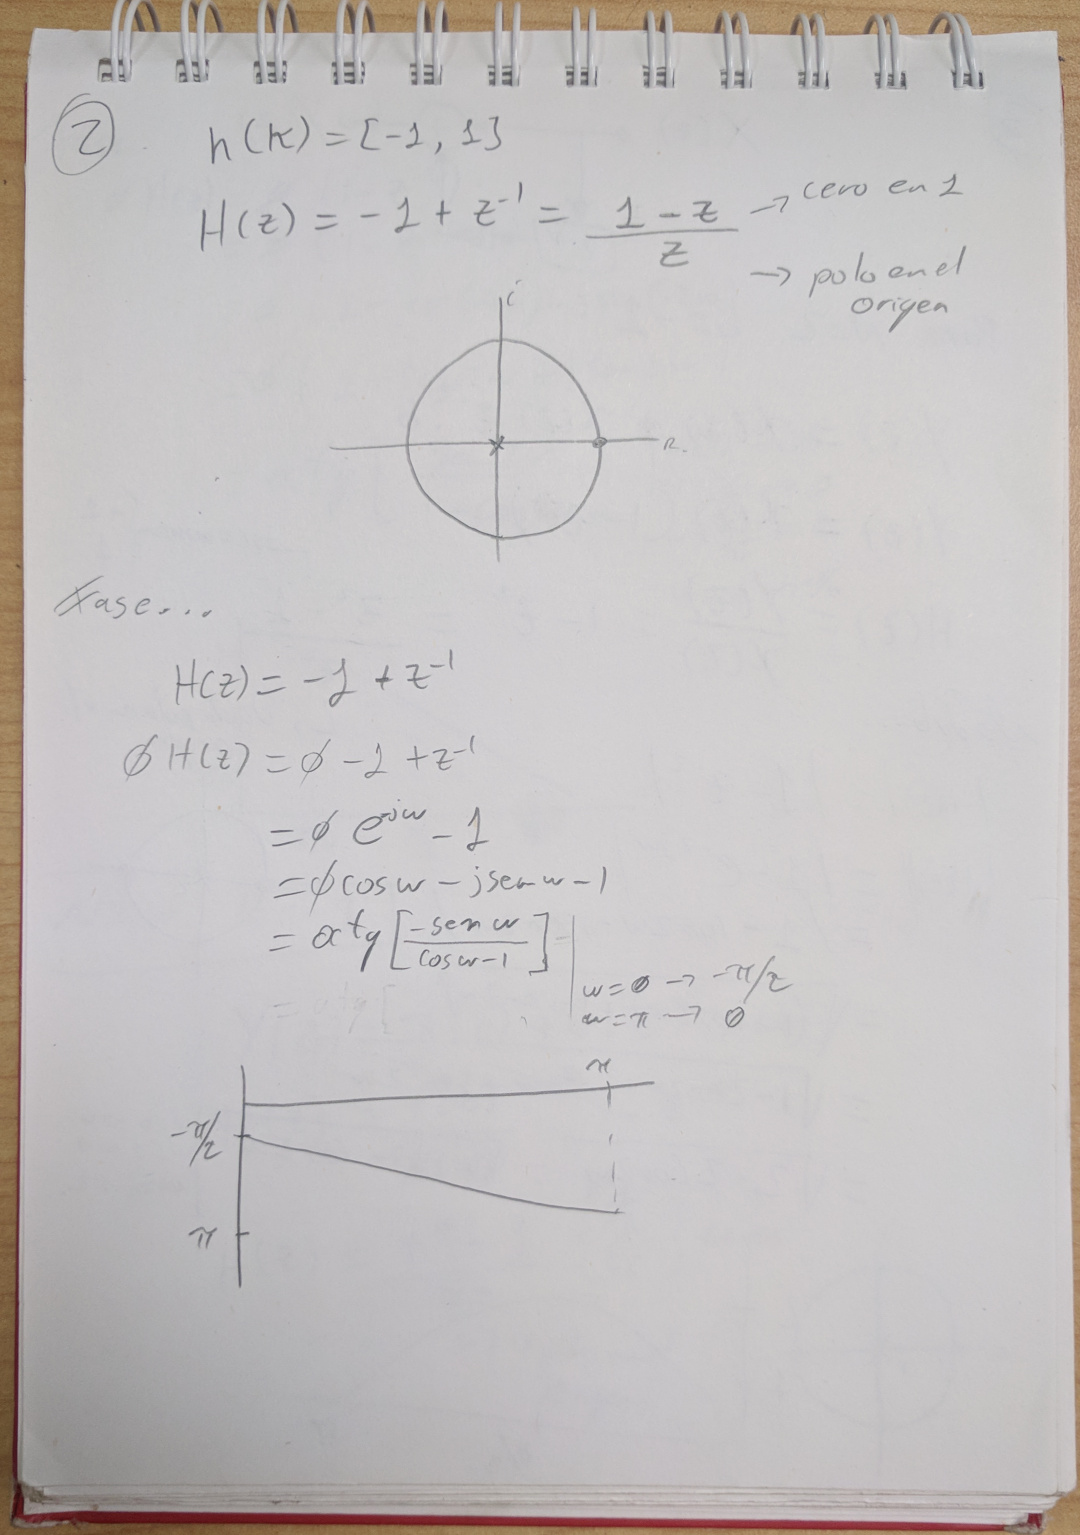 2
h(k) = [-1, 1]
H(z) = -1 + z⁻¹ = (1 - z)/z → cero en 1
→ polo en el origen
i
R.
Fase...
H(z) = -1 + z⁻¹
∅ H(z) = ∅ -1 + z⁻¹
= ∅ e^-jw - 1
= ∅ cos w - j sen w - 1
= atg [-sen w / cos w - 1]
w = 0 → -π/2
w = π → 0
π
-π/2
π